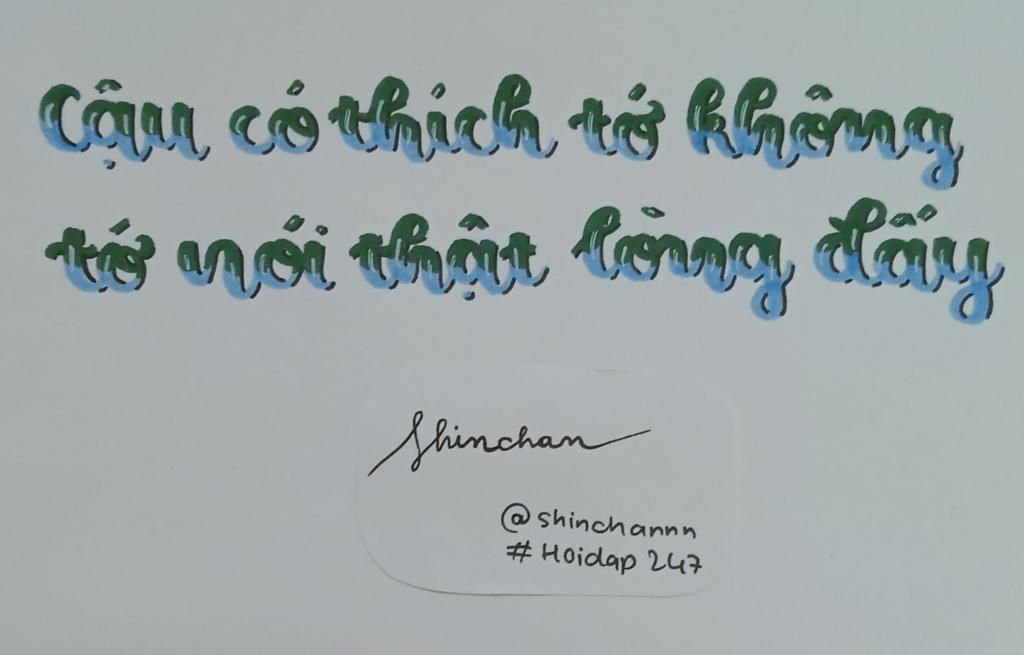 Cậu có thích tớ không
tớ nói thật lòng đấy
Shinchan
@shinchannn
#Hoidap 247